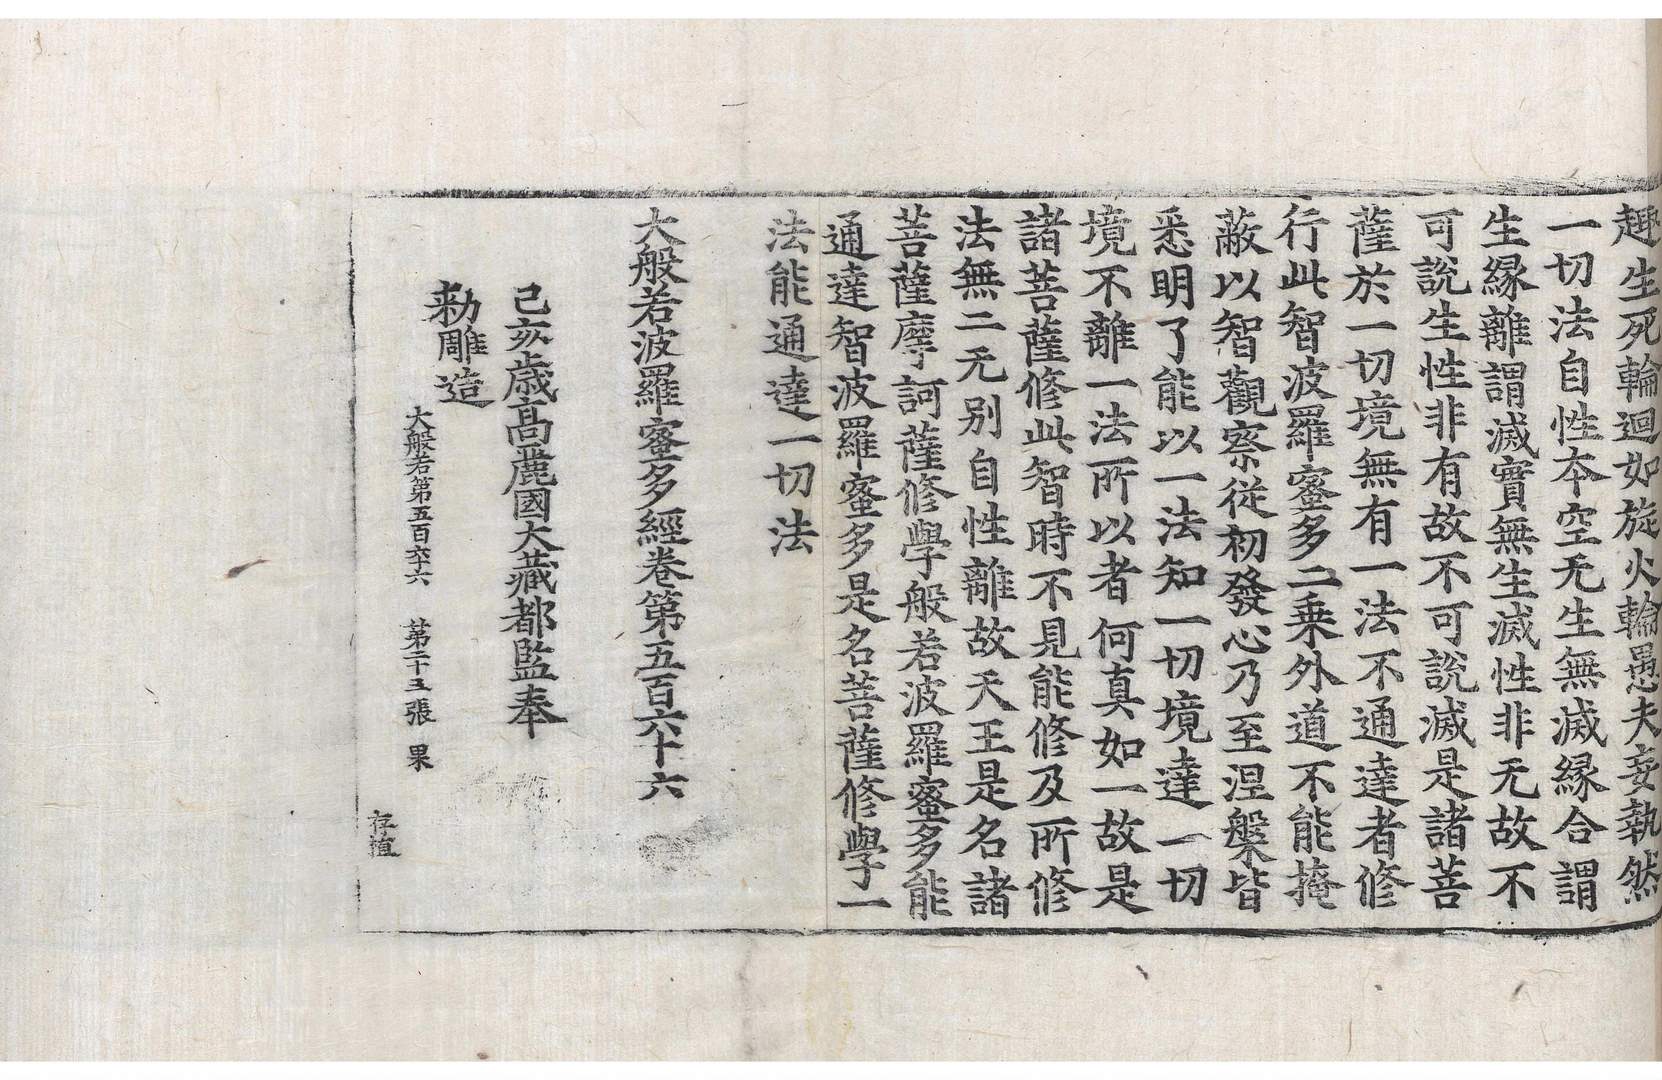 趣生死輪迴如旋火輪愚夫妄執然
一切法自性本空无生無滅縁合謂
生縁離謂滅實無生滅性非无故不
可說生性非有故不可說滅是諸菩
薩於一切境無有一法不通達者修
行此智波羅蜜多二乗外道不能掩
蔽以智觀察従初發心乃至涅槃皆
悉明了能以一法知一切境達一切
境不離一法所以者何真如一故是
諸菩薩修此智時不見能修及所修
法無二无別自性離故天王是名諸
菩薩摩訶薩修學般若波羅蜜多能
通達智波羅蜜多是名菩薩修學一
法能通達一切法
大般若波羅蜜多經卷第五百六十六
己亥歲高麗國大藏都監奉
勅雕造
大般若第五百六十六 第二十五張 果
存植